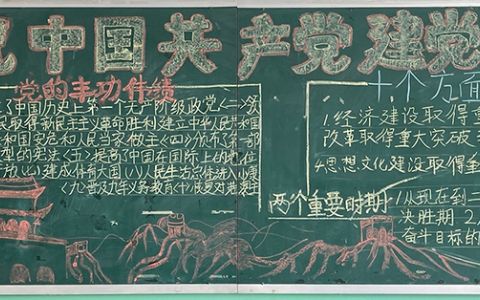 中国共产党建党
党的丰功伟绩
了中国历史上第一个无产阶级政党<二>领
民取得新民主主义革命胜利建立中华人民共和国
和国安危和人民当家做主<四>颁布第一部
型的宪法<五>提高了中国在国际上的地位
<六>建成体育大国<八>人民生活总体进入小康
<九>普及九年义务教育<十>
十个方面
1经济建设取得重
改革取得重大突破
4思想文化建设取得重
两个重要时期
1从现在到
决胜期2
奋斗目标的